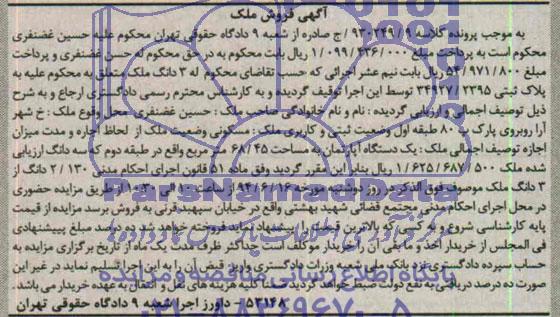 آگهی فروش ملک
به موجب پرونده کلاسه ۹ / ۹۳۰۲۴۹ / ج صادره از شعبه ۹ دادگاه حقوقی تهران محکوم علیه حسین غضنفری
محکوم است به پرداخت مبلغ ۱/۰۹۹/۴۳۶/۰۰۰ ریال بابت محکوم به در حق محکوم له حسن غضنفری و پرداخت
مبلغ ۵۴/۹۷۱/۸۰۰ ریال بابت نیم عشر اجرائی که حسب تقاضای محکوم له ۳ دانگ ملک متعلق به محکوم علیه به
پلاک ثبتی ۲۳۹۵ / ۳۴۹۲۷ توسط این اجرا توقیف گردیده و به کارشناس محترم رسمی دادگستری ارجاع و به شرح
ذیل توصیف اجمالی و ارزیابی گردیده : نام و نام خانوادگی صاحب ملک : حسین غضنفری محل وقوع ملک : خ شهر
آرا روبروی پارک پ ۸۰ طبقه اول وضعیت ثبتی و کاربری ملک : مسکونی وضعیت ملک از لحاظ اجاره و مدت میزان
اجاره توصیف اجمالی ملک : یک دستگاه آپارتمان به مساحت ۶۸/۴۵ متر مربع واقع در طبقه دوم که سه دانگ ارزیابی
شده ملک ۱/۶۲۵/۶۸۷/۵۰۰ ریال بنابر این مقرر گردید وفق ماده ۵۱ قانون اجرای احکام مدنی ۲/۱۳ دانگ از
۳ دانگ ملک موصوف فوق الذکر در روز دوشنبه مورخه ۹۴/۶/۱۶ از ساعت ۱۰ الی ۱۰:۳۰ از طریق مزایده حضوری
در محل اجرای احکام مدنی مجتمع قضائی واقع در خیابان سپهبد قرنی به فروش برسد مزایده از قیمت
پایه کارشناسی شروع و به کسی که بالاترین قیمت را پیشنهاد نماید فروخته خواهد شد ده درصد مبلغ پیشنهادی
فی المجلس از خریدار اخذ و مابقی آن را خریدار مکلف است حداکثر ظرف مدت یک ماه از تاریخ برگزاری مزایده به
حساب سپرده دادگستری نزد بانک ملی شعبه وزرات دادگستری واریز و قبض آن را به این اجرا تسلیم نماید در غیر این
صورت ده درصد دریافتی به نفع دولت ضبط خواهد گردید ضمنا کلیه هزینه های نقل و انتقال به عهده خریدار می باشد.
۵۳۱۴۸ - داورز اجرا شعبه ۹ دادگاه حقوقی تهران
ParsNamadData
پایگاه اطلاع رسانی مناقصه و مزایده
۰۲۱-۸۸۳۴۹۶۷۰-۵